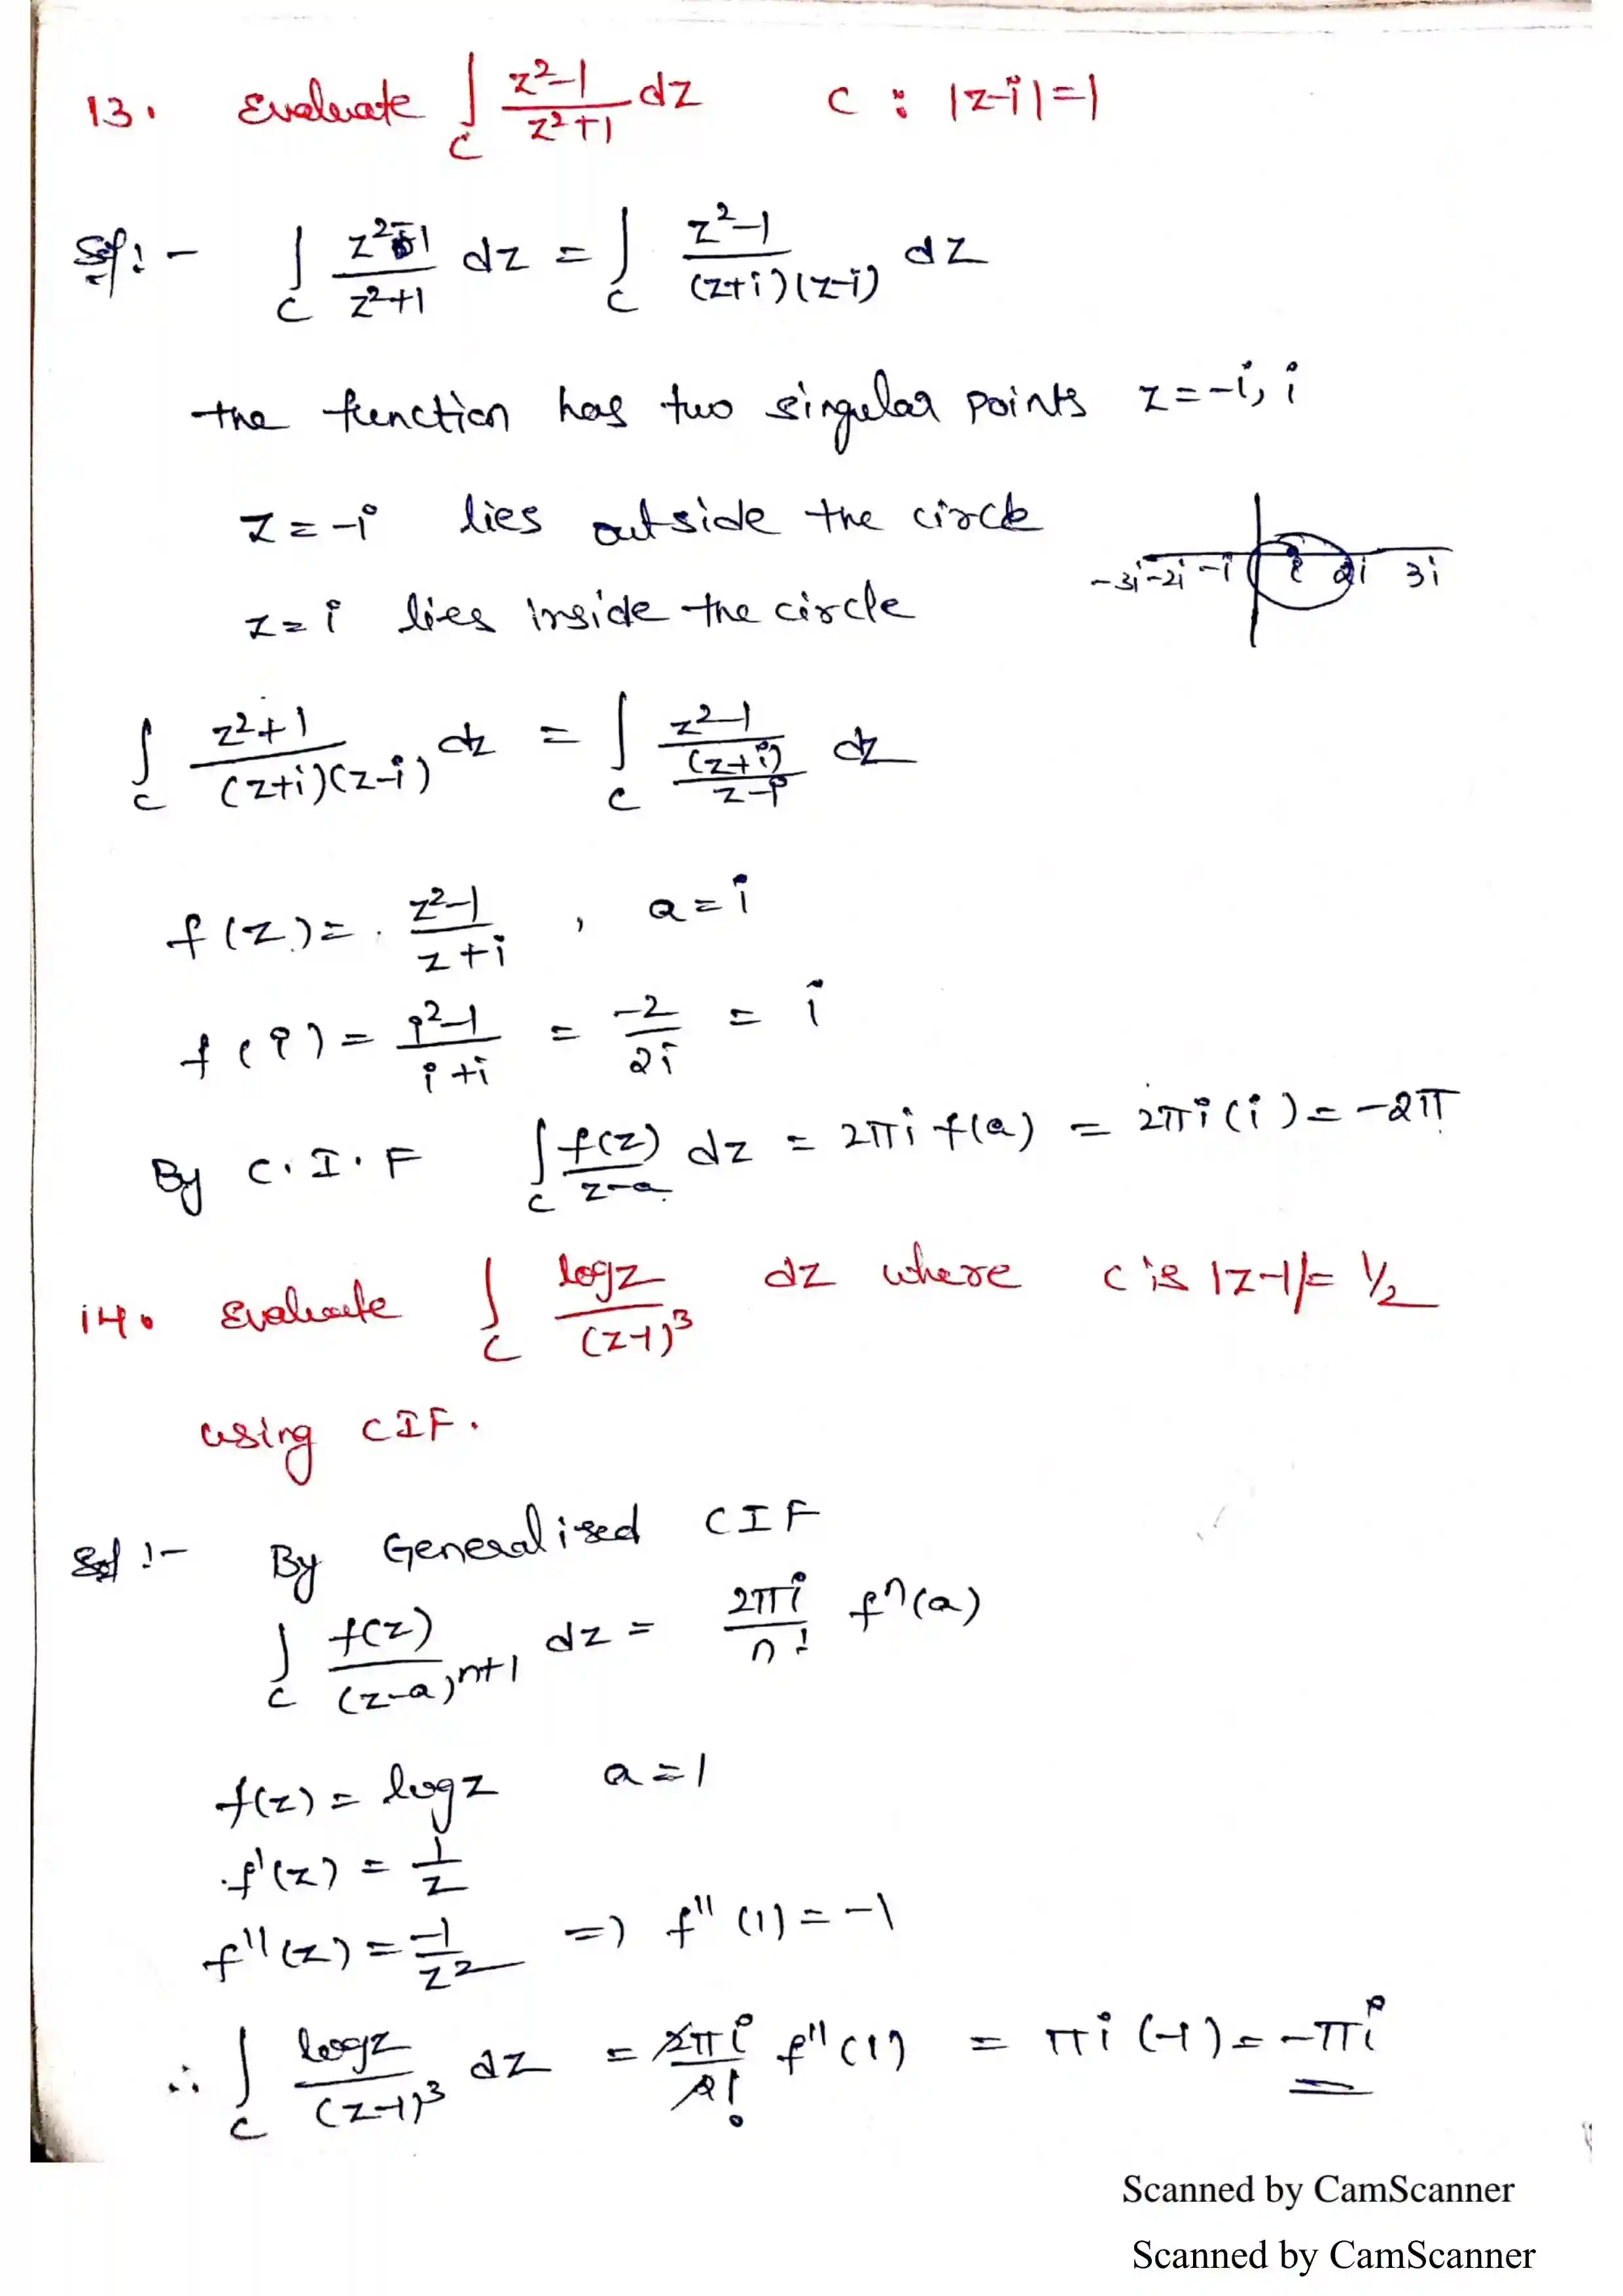 13. Evaluate ∫_C (z²-1)/(z²+1) dz C : |z-i|=1
Sol:- ∫_C (z²-1)/(z²+1) dz = ∫_C (z²-1)/((z+i)(z-i)) dz
the function has two singular points z=-i, i
z=-i lies outside the circle
-3i -2i -i i 2i 3i
z=i lies inside the circle
∫_C (z²+1)/((z+i)(z-i)) dz = ∫_C ((z²-1)/(z+i))/(z-i) dz
f(z)= (z²-1)/(z+i) , a=i
f(i)= (i²-1)/(i+i) = -2/2i = i
By C.I.F ∫_C f(z)/(z-a) dz = 2πi f(a) = 2πi(i)= -2π
14. Evaluate ∫_C logz/(z-1)³ dz where C is |z-1|= 1/2
using CIF.
Sol:- By Generalised CIF
∫_C f(z)/(z-a)^(n+1) dz = 2πi/n! fⁿ(a)
f(z)= logz a=1
f'(z) = 1/z
f''(z) = -1/z² => f''(1)=-1
∴ ∫_C logz/(z-1)³ dz = 2πi/2! f''(1) = πi(-1)= -πi
Scanned by CamScanner
Scanned by CamScanner